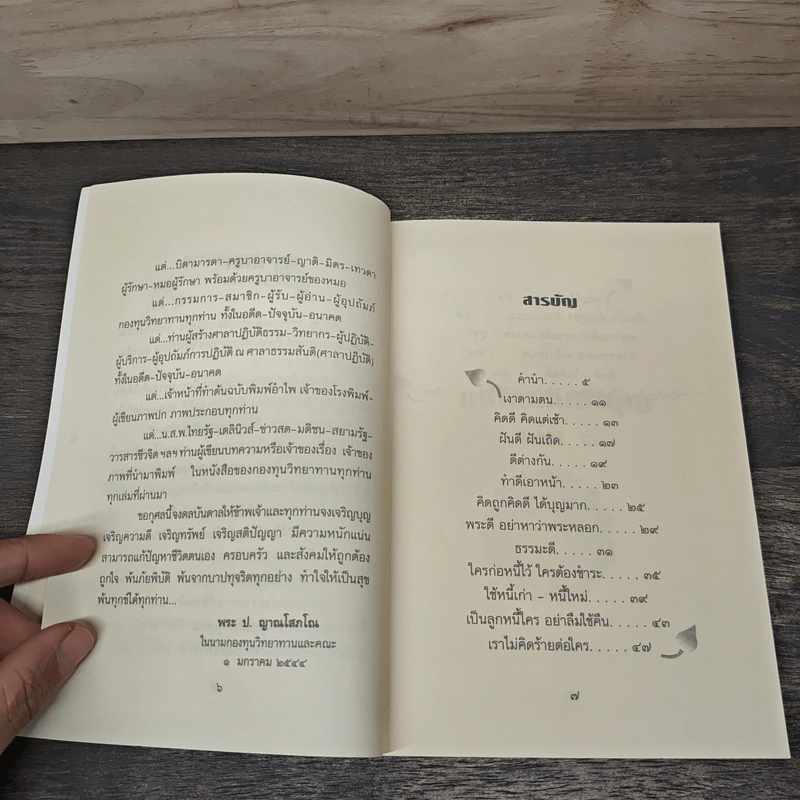 แด่...บิดามารดา-ครูบาอาจารย์-ญาติ-มิตร-เทวดา
ผู้รักษา-หมอผู้รักษา พร้อมด้วยครูบาอาจารย์ของหมอ
แด่...กรรมการ-สมาชิก-ผู้รับ-ผู้อ่าน-ผู้อุปถัมภ์
กองทุนวิทยาทานทุกท่าน ทั้งในอดีต-ปัจจุบัน-อนาคต
แด่...ท่านผู้สร้างศาลาปฏิบัติธรรม-วิทยากร-ผู้ปฏิบัติ-
ผู้บริการ-ผู้อุปถัมภ์การปฏิบัติ ณ ศาลาธรรมสันติ(ศาลาปฏิบัติ)
ทั้งในอดีต-ปัจจุบัน-อนาคต
แด่...เจ้าหน้าที่ทำต้นฉบับพิมพ์อำไพ เจ้าของโรงพิมพ์-
ผู้เขียนภาพปก ภาพประกอบทุกท่าน
แด่...น.ส.พ.ไทยรัฐ-เดลินิวส์-ข่าวสด-มติชน-สยามรัฐ-
วารสารชีวจิต ฯลฯ ท่านผู้เขียนบทความหรือเจ้าของเรื่อง เจ้าของ
ภาพที่นำมาพิมพ์ ในหนังสือของกองทุนวิทยาทานทุกท่าน
ทุกเล่มที่ผ่านมา
ขอกุศลนี้จงดลบันดาลให้ข้าพเจ้าและทุกท่านจงเจริญบุญ
เจริญความดี เจริญทรัพย์ เจริญสติปัญญา มีความหนักแน่น
สามารถแก้ปัญหาชีวิตตนเอง ครอบครัว และสังคมให้ถูกต้อง
ถูกใจ พ้นภัยพิบัติ พ้นจากบาปทุจริตทุกอย่าง ทำใจให้เป็นสุข
พ้นทุกข์ได้ทุกท่าน...
พระ ป. ญาณโสภโณ
ในนามกองทุนวิทยาทานและคณะ
๑ มกราคม ๒๕๔๔
๖
สารบัญ
คำนำ. . . . . ๕
เงาตามตน. . . . . ๑๑
คิดดี คิดแต่เช้า. . . . . ๑๓
ฝันดี ฝันเถิด. . . . . ๑๗
ดีต่างกัน. . . . . ๑๙
ทำดีเอาหน้า. . . . . ๒๓
คิดถูกคิดดี ได้บุญมาก. . . . . ๒๕
พระดี อย่าหาว่าพระหลอก. . . . . ๒๙
ธรรมะดี. . . . . ๓๑
ใครก่อหนี้ไว้ ใครต้องชำระ. . . . . ๓๕
ใช้หนี้เก่า - หนี้ใหม่. . . . . ๓๙
เป็นลูกหนี้ใคร อย่าลืมใช้คืน. . . . . ๔๓
เราไม่คิดร้ายต่อใคร. . . . . ๔๗
๗